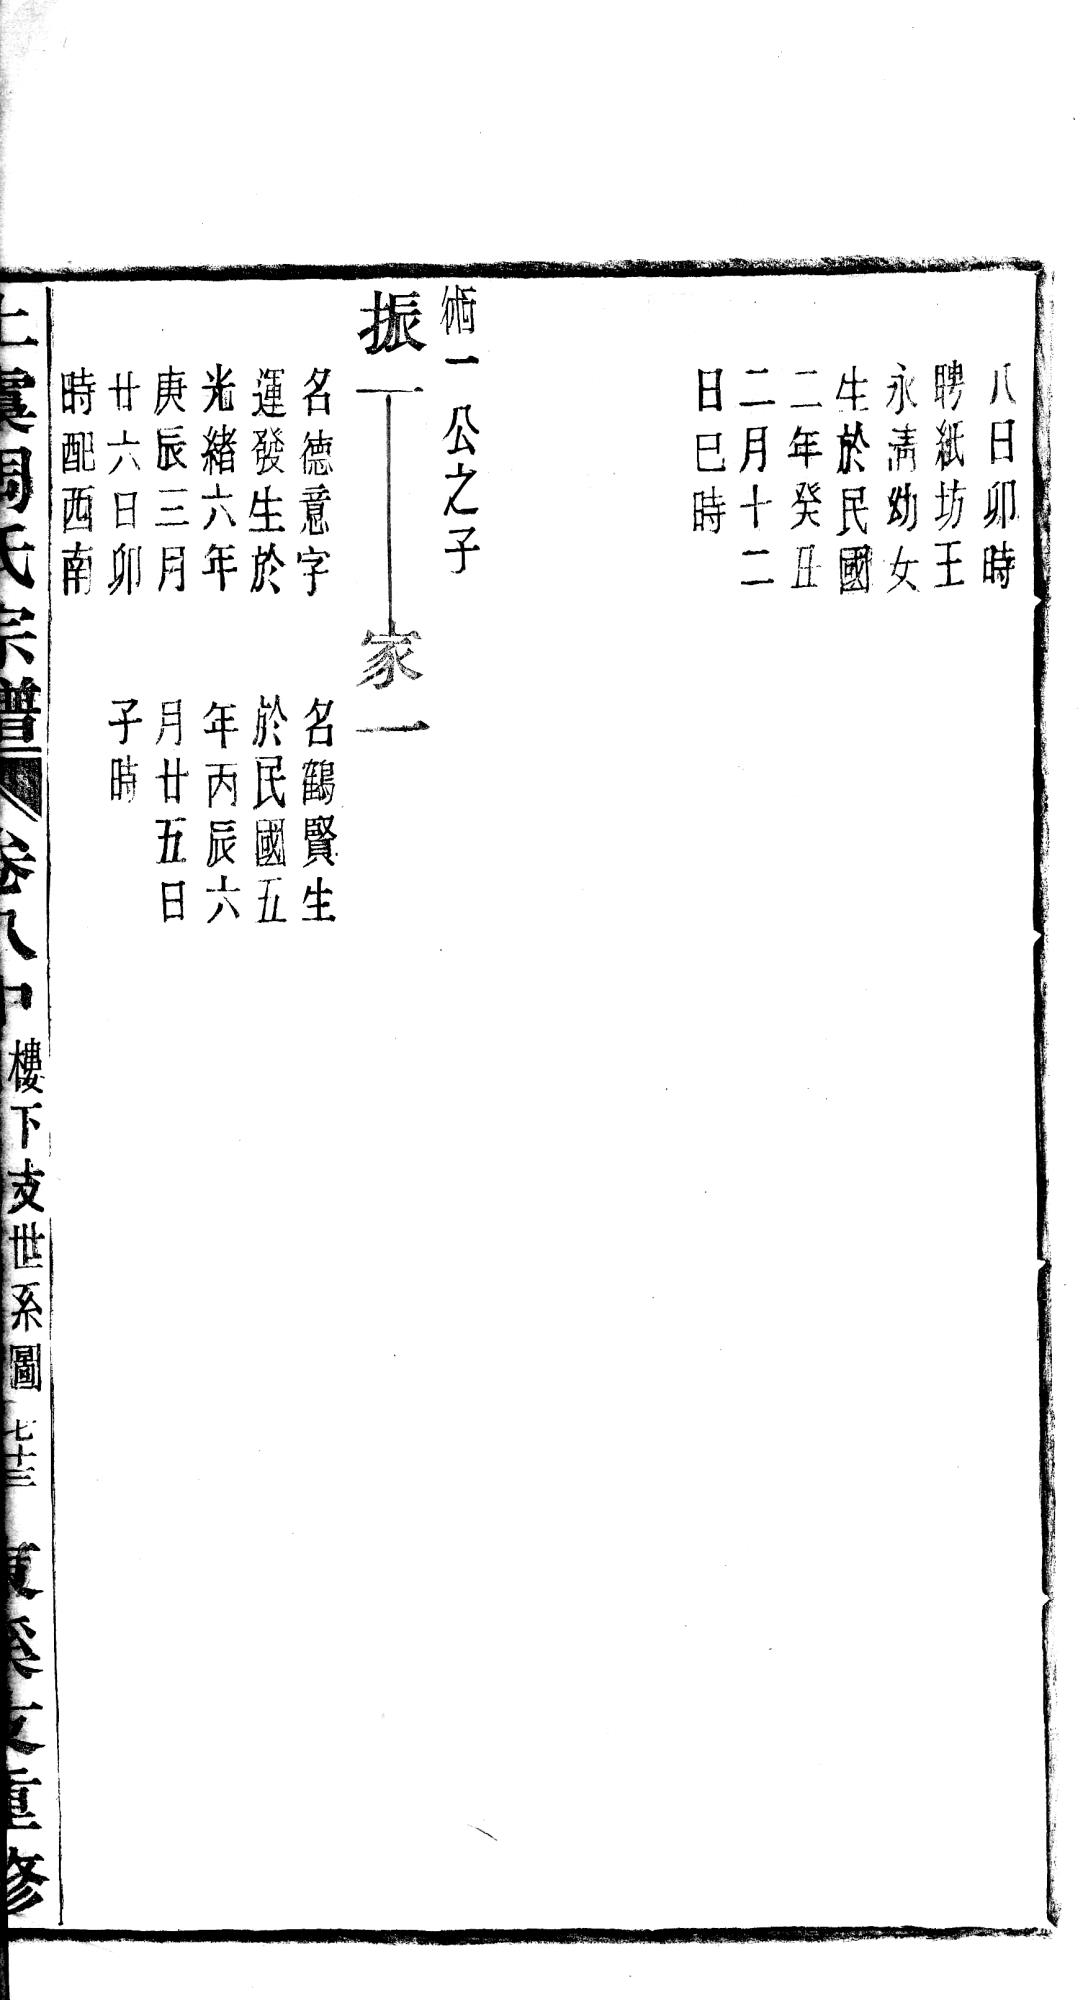 八日卯時
聘紙坊王
永淸幼女
生於民國
二年癸丑
二月十二
日巳時
一公之子
振一
家一
名德意字
運發生於
光緒六年
庚辰三月
廿六日卯
時配西南
名鶴賢生
於民國五
年丙辰六
月廿五日
子時
上虞周氏宗譜
卷八中
樓下支世系圖
七十三
重修